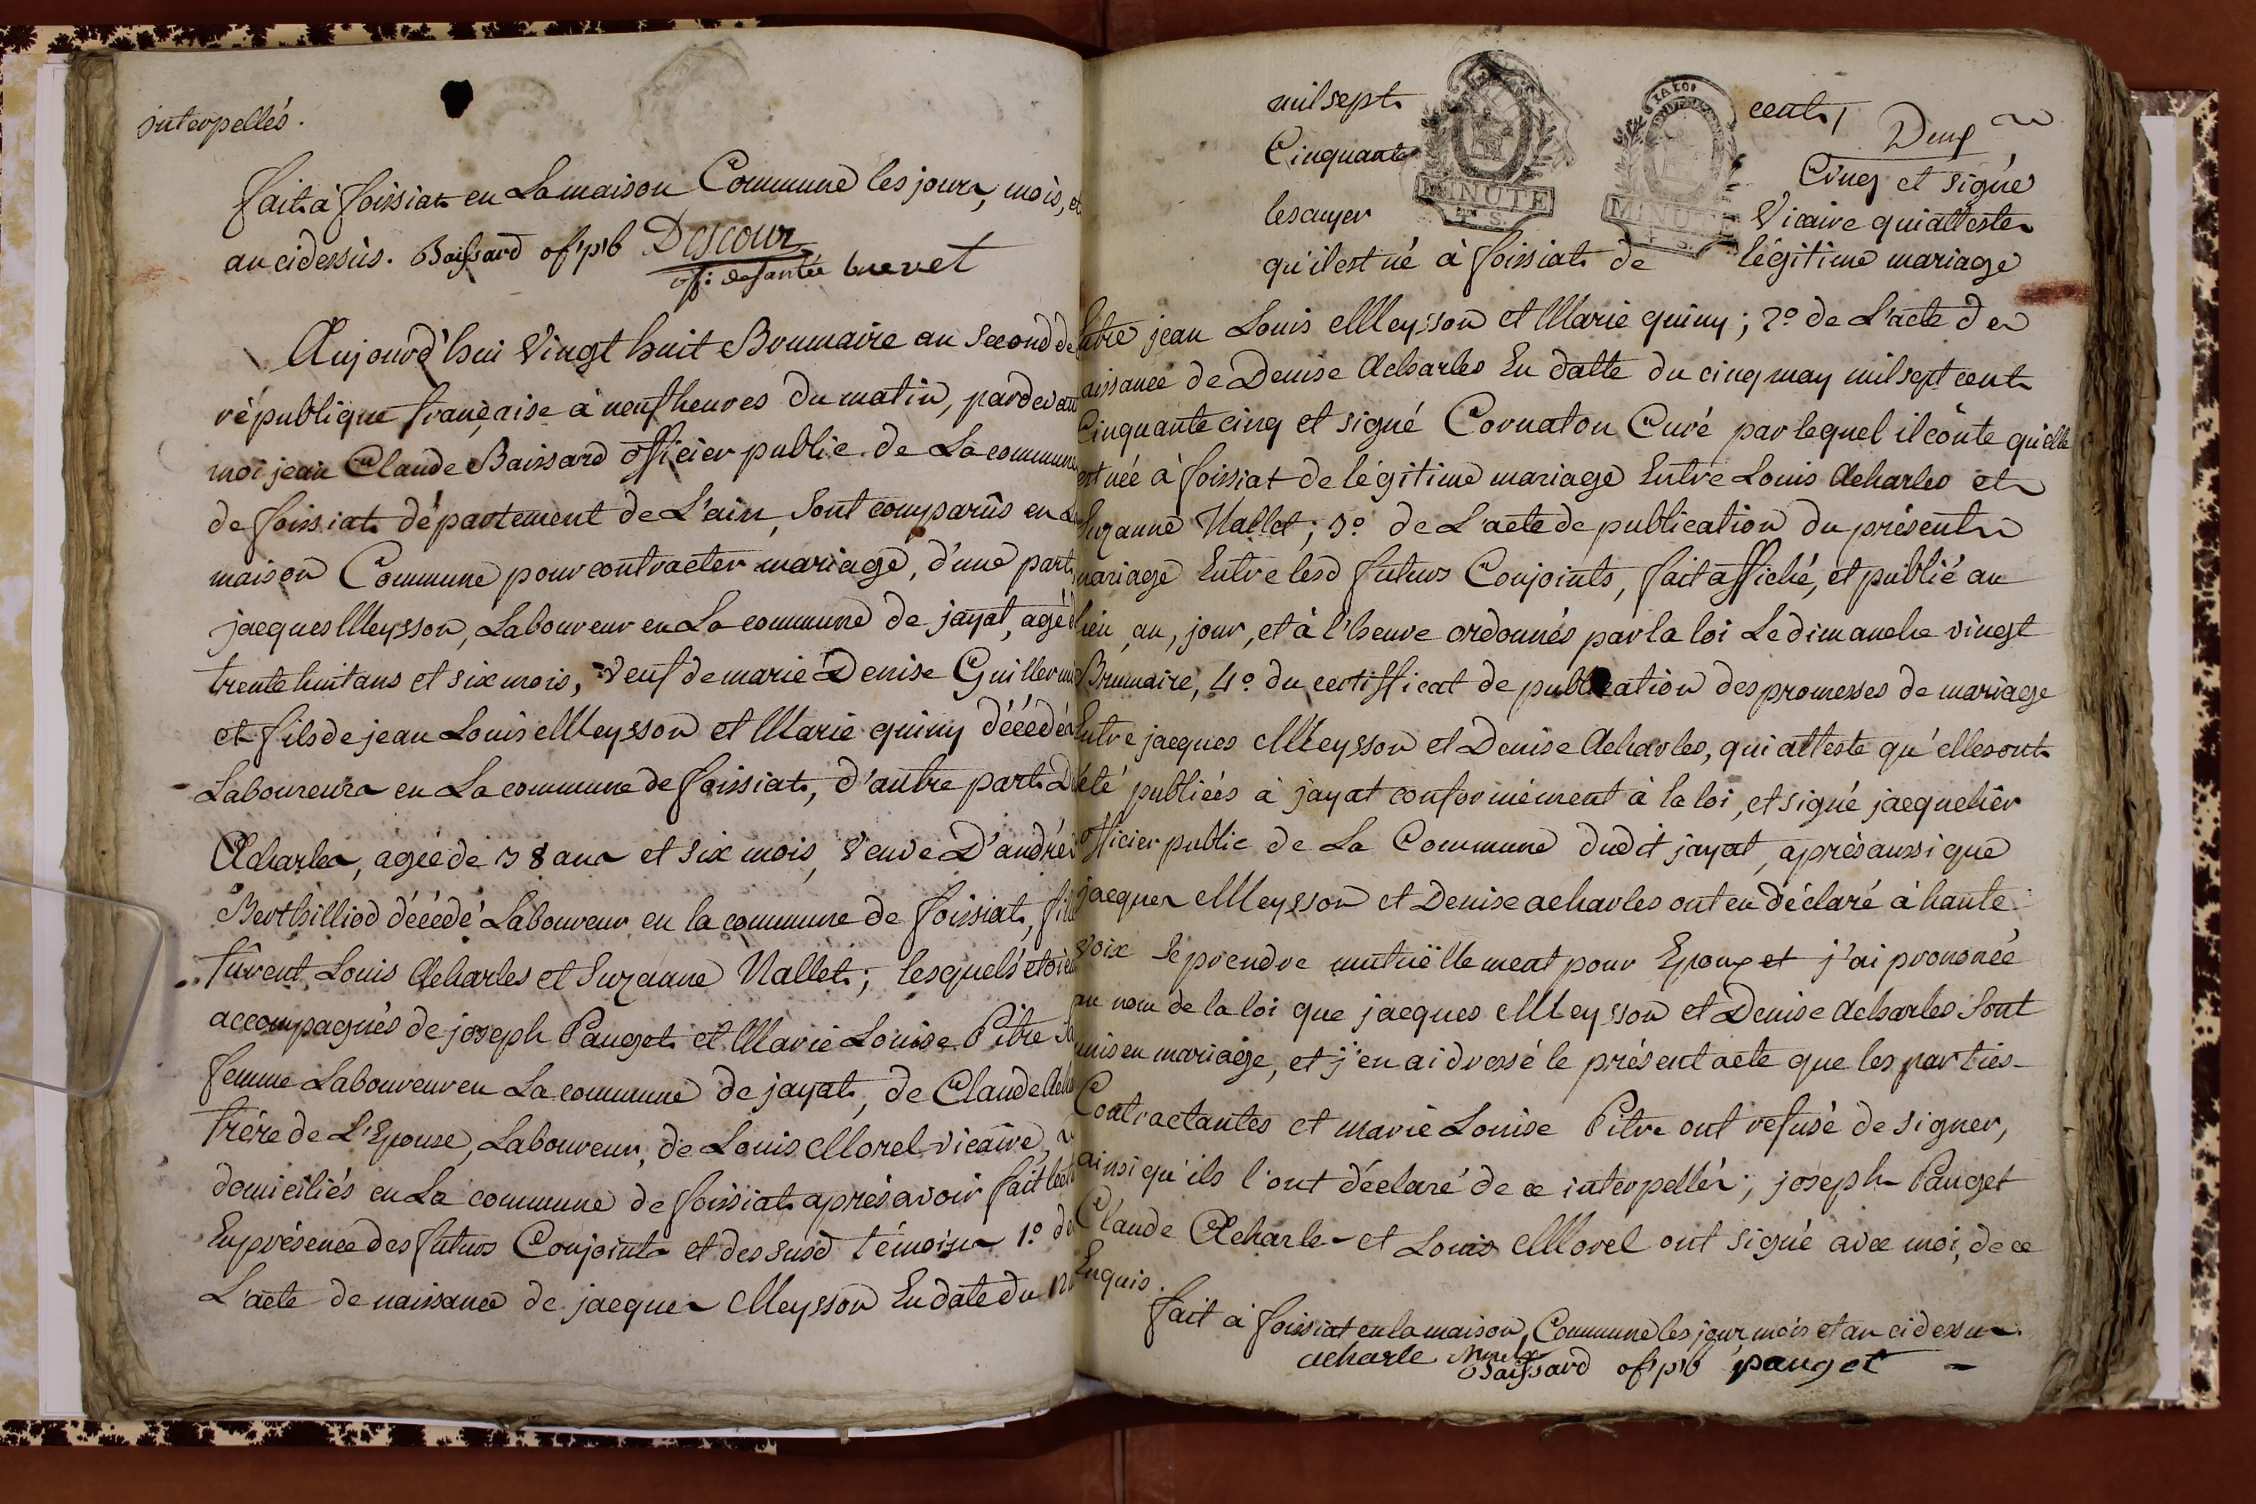 interpellés.
fait à foissiat en La maison Commune les jour, mois, et
an cidessùs. Baissard of. p'b Descour
off: de santée brevet
Aujourd'hui Vingt huit Brumaire an Second de
république française à neuf heures du matin, pardevant
moi jean Claude Baissard officier public de La commune
de foissiat département de L'ain, sont comparûs en La
maison Commune pour contracter mariage, d'une part,
jacques Meysson, Laboureur en La commune de jayat, agé d
trente huit ans et six mois, veuf de marie Denise Guillermi
et fils de jean Louis Meysson et Marie quiny décédés
Laboureurs en La commune de foissiat, d'autre part D
Acharles, agée de 38 ans et six mois, veuve D'andré
Berthilliod décédé Laboureur en la commune de foissiat, fil
fûrent Louis Acharles et Suzanne Nallet; lesquels étoie
accompagnés de joseph Pauget et Marie Louise Pitre Sa
femme Laboureur en La commune de jayat, de Claude Ach
frére de L'Epouse, Laboureur, de Louis Morel vicaire,
domiciliés en La commune de foissiat après avoir fait lect
En présence des futurs Conjoints et des susd témoins 1.º de
L'acte de naissance de jacques Meysson En date du
mil sept cent
Cinquante Cinq et signé
lescuyer Vicaire qui atteste
qu'il est né à foissiat de légitime mariage
Entre jean Louis Meysson et Marie quiny; 2.º de L'acte de
naissance de Denise Acharles En datte du cinq may mil sept cent
Cinquante cinq et signé Cornaton Curé par lequel il conte qu'elle
est née à foissiat de légitime mariage Entre Louis Acharles et
Suzanne Nallet; 3.º de L'acte de publication du présent
mariage Entre lesd futurs Conjoints, fait affiché, et publié au
lieu, an, jour, et à l'heure ordonnés par la loi Le dimanche vingt
Brumaire, 4.º du certifficat de publication des promesses de mariage
Entre jacques Meysson et Denise Acharles, qui atteste qu'elles ont
été publiées à jayat conformément à la loi, et signé jacquelier
officier public de La Commune dudit jayat, après aussi que
jacques Meysson et Denise acharles ont eu déclaré à haute
voix se prendre mutuëllement pour Epoux et j'ai prononcé
au nom de la loi que jacques Meysson et Denise Acharles sont
unis en mariage, et j'en ai dressé le présent acte que les parties
Contractantes et marie Louise Pitre ont refusé de signer,
ainsi qu'ils l'ont déclaré de ce interpellés; joseph Pauget
Claude Acharles et Louis Morel ont signé avec moi, de ce
Enquis.
fait à foissiat en la maison Commune les jour, mois et an cidessus.
acharle Morel
Baissard of p'b pauget
MINUTE
MINUTE